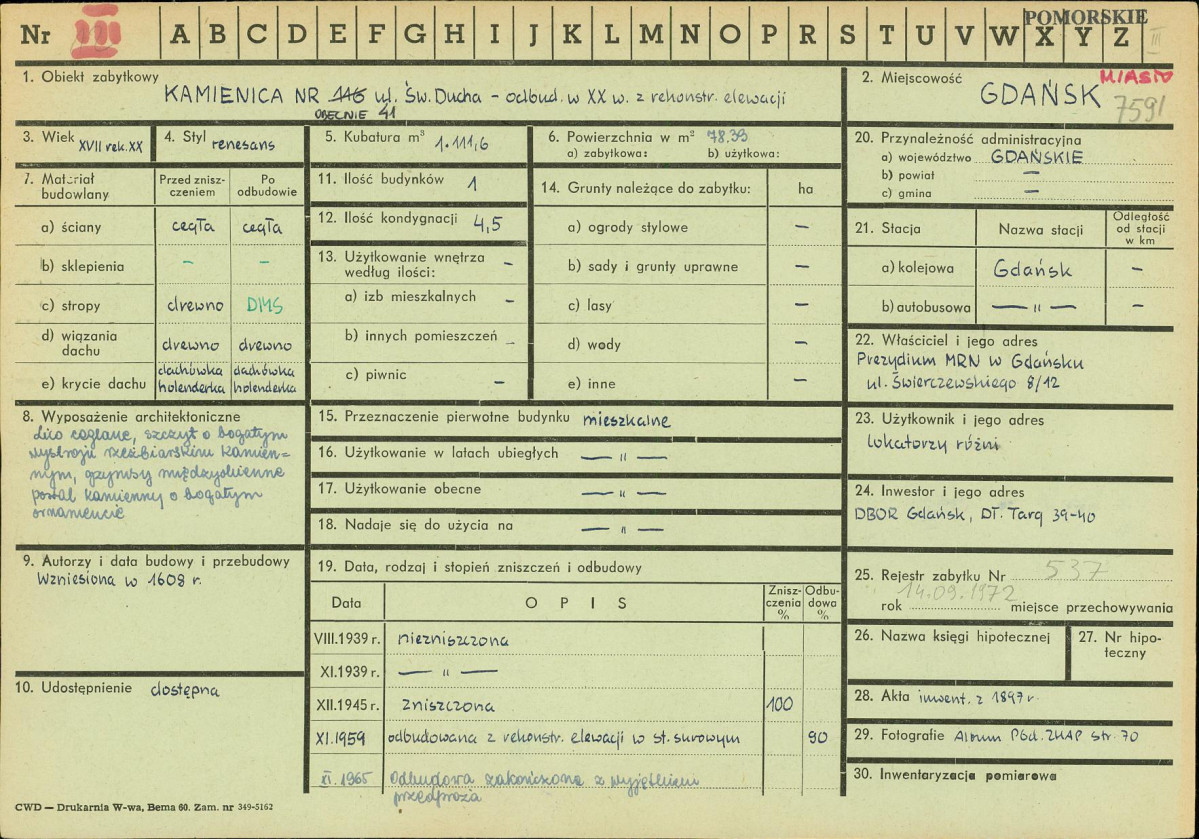 Nr III A B C D E F G H I J K L M N O P R S T U V W X Y Z III
POMORSKIE
1. Obiekt zabytkowy
KAMIENICA NR 146 ul. Św. Ducha – odbud. w XX w. z rekonstr. elewacji
OBECNIE 41
2. Miejscowość MIASTO
GDAŃSK 7591
3. Wiek XVII rek. XX
4. Styl renesans
5. Kubatura m³ 1.111,6
6. Powierzchnia w m² 78.39
a) zabytkowa: b) użytkowa:
7. Materiał budowlany
Przed zniszczeniem
Po odbudowie
a) ściany cegła cegła
b) sklepienia – –
c) stropy drewno DMS
d) wiązania dachu drewno drewno
e) krycie dachu dachówka holenderka dachówka holenderka
8. Wyposażenie architektoniczne
Lico ceglane, szczyt o bogatym
wystroju rzeźbiarskim kamien=
nym, gzymsy międzyokienne
portal kamienny o bogatym
ornamencie
9. Autorzy i data budowy i przebudowy
Wzniesiona w 1608 r.
10. Udostępnienie dostępna
11. Ilość budynków 1
12. Ilość kondygnacji 4,5
13. Użytkowanie wnętrza –
według ilości:
a) izb mieszkalnych –
b) innych pomieszczeń –
c) piwnic –
14. Grunty należące do zabytku: ha
a) ogrody stylowe –
b) sady i grunty uprawne –
c) lasy –
d) wody –
e) inne –
15. Przeznaczenie pierwotne budynku mieszkalne
16. Użytkowanie w latach ubiegłych — „ —
17. Użytkowanie obecne — „ —
18. Nadaje się do użycia na — „ —
19. Data, rodzaj i stopień zniszczeń i odbudowy
Data OPIS Zniszczenia % Odbudowa %
VIII.1939 r. niezniszczona
XI.1939 r. — „ —
XII.1945 r. zniszczona 100
XI.1959 odbudowana z rekonstr. elewacji w st. surowym 90
XI. 1965 Odbudowa zakończona z wyjątkiem
przedproża
20. Przynależność administracyjna
a) województwo GDAŃSKIE
b) powiat –
c) gmina –
21. Stacja Nazwa stacji Odległość od stacji w km
a) kolejowa Gdańsk –
b) autobusowa — „ — –
22. Właściciel i jego adres
Prezydium MRN w Gdańsku
ul. Świerczewskiego 8/12
23. Użytkownik i jego adres
lokatorzy różni
24. Inwestor i jego adres
DBOR Gdańsk, Dł. Targ 39-40
25. Rejestr zabytku Nr 537
rok 14.09.1972 miejsce przechowywania
26. Nazwa księgi hipotecznej
27. Nr hipoteczny
28. Akta inwent. z 1897 r.
29. Fotografie Album P6d. ZHAP str. 70
30. Inwentaryzacja pomiarowa
CWD — Drukarnia W-wa, Bema 60. Zam. nr 349-5162